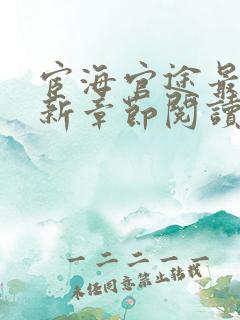 宦海官途最
新章節閱讀
一二二一一
未经同意禁止转载